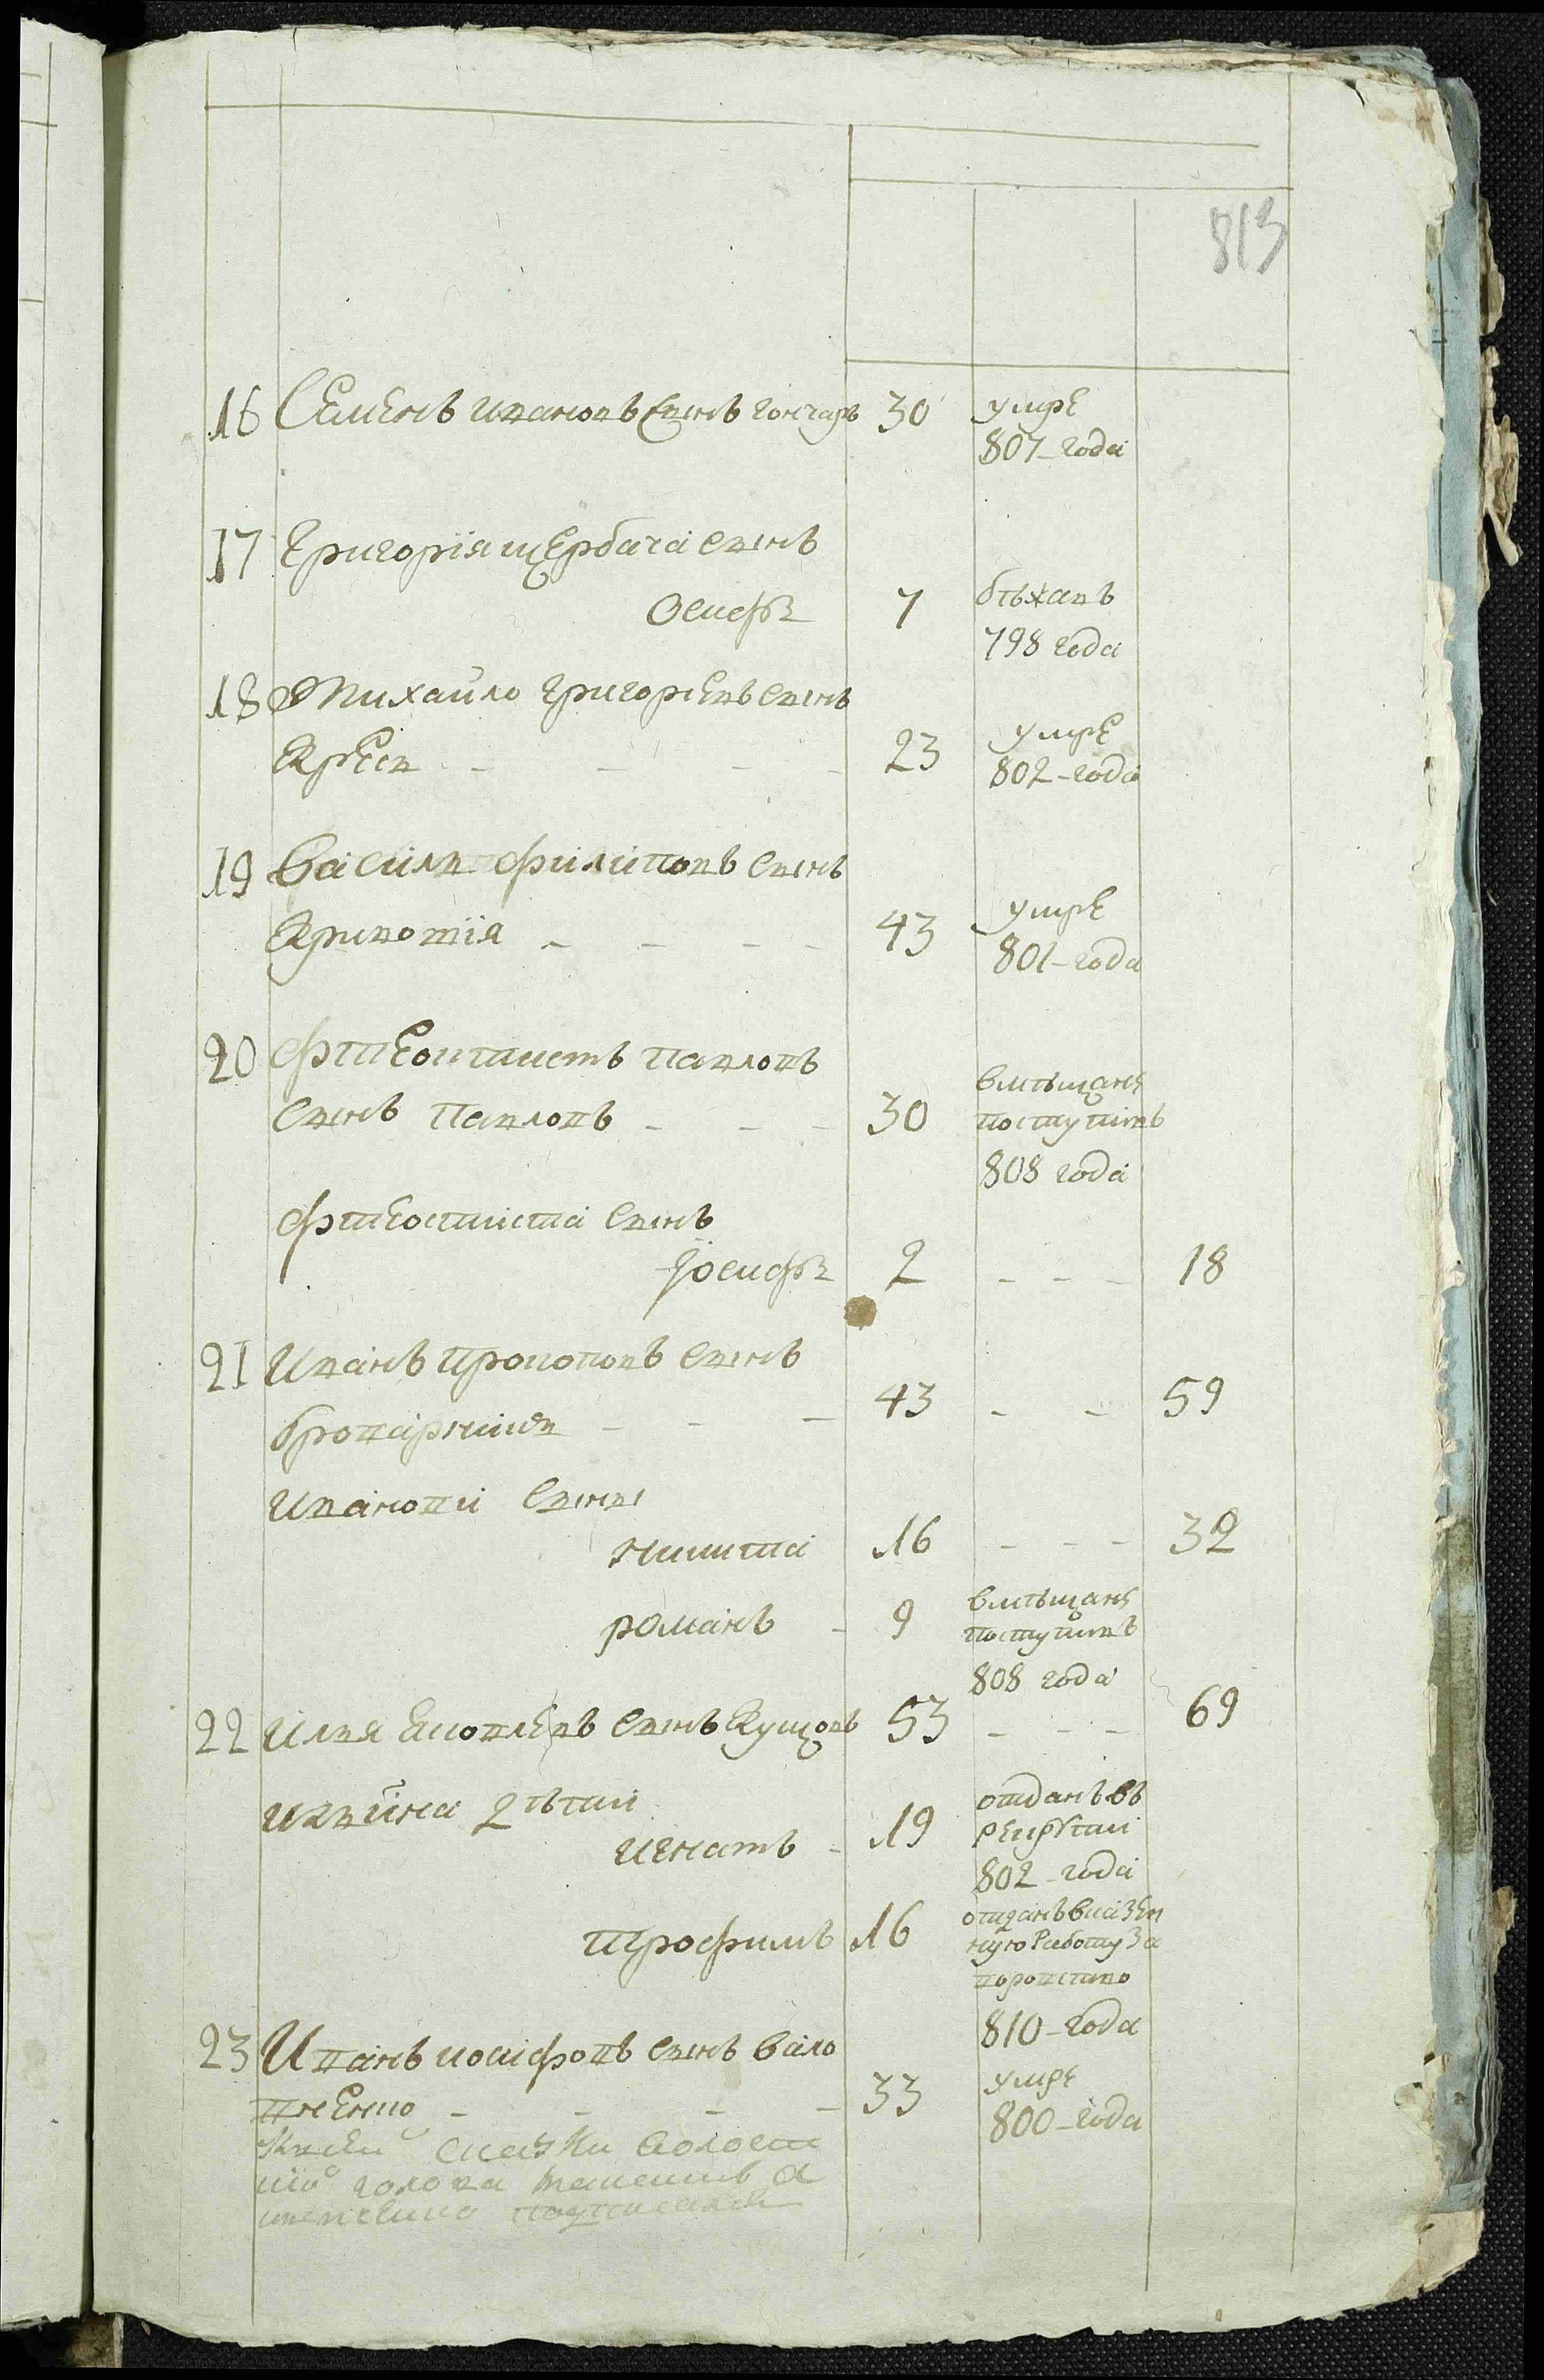 813
16 Семенъ Ивановъ Сынъ гончаръ 30 умре
807-года
17 Григорія щербача Сынъ
Осифъ 7 бѣжалъ
798 года
18 Михайло Григорьевъ Сынъ
Кресъ - - - - 23 умре
802-года
19 Василь Филиповъ Сынъ
Кривошія - - - - 43 умре
801-года
20 Фтеоктистъ Павловъ
Сынъ Павловъ - - - 30 вмѣщане
поступилъ
808 года
Фтеостиста Сынъ
Іосифъ 2 - - - 18
21 Иванъ Прокоповъ Сынъ
броварникъ - - - 43 - - 59
Ивановы Сыны
Никита 16 - - - 32
романъ - 9 вмѣщане
поступилъ
808 года
22 Илья Яковлевъ Сынъ Кущовъ 53 - - - 69
Ильина 2 ѣти
Игнатъ - 19 отданъ въ
рекруты
802-года
Трофимъ 16 отданъ вказен
ную Работу За
воровство
810-года
23 Иванъ иосифовъ Сынъ вало
вненко - - - - 33 умре
800-года
Ксей Сказки волост
ной голова
подписался